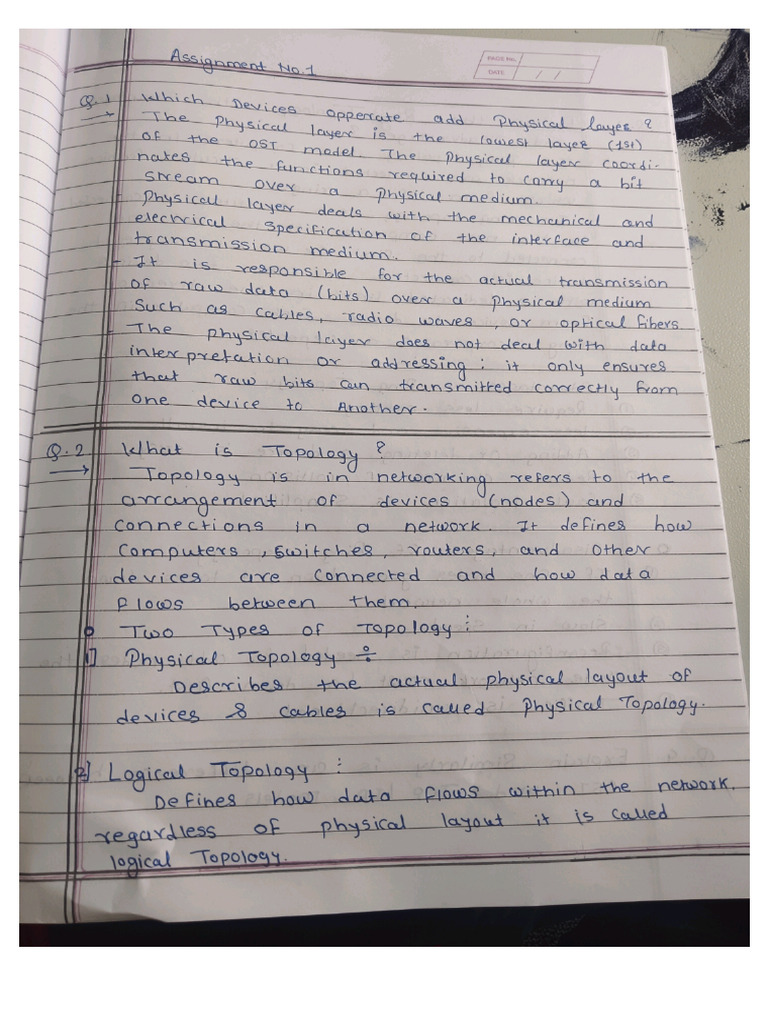 Assignment No.1
PAGE No.
DATE / /
Q.1 Which Devices opperate add Physical layer ?
→ The Physical layer is the lowest layer (1st)
of the OSI model. The Physical layer coordi-
nates the functions required to carry a bit
stream over a physical medium.
- Physical layer deals with the mechanical and
electrical specification of the interface and
transmission medium.
- It is responsible for the actual transmission
of raw data (bits) over a physical medium
Such as cables, radio waves, or optical fibers.
- The physical layer does not deal with data
interpretation or addressing; it only ensures
that raw bits can transmitted correctly from
one device to Another.
Q.2 What is Topology ?
→ Topology is in networking refers to the
arrangement of devices (nodes) and
connections in a network. It defines how
computers, switches, routers, and other
devices are connected and how data
flows between them.
o Two Types of Topology :
1] Physical Topology :
Describes the actual physical layout of
devices & cables is called Physical Topology.
2] Logical Topology :
Defines how data flows within the network,
regardless of physical layout it is called
logical Topology.